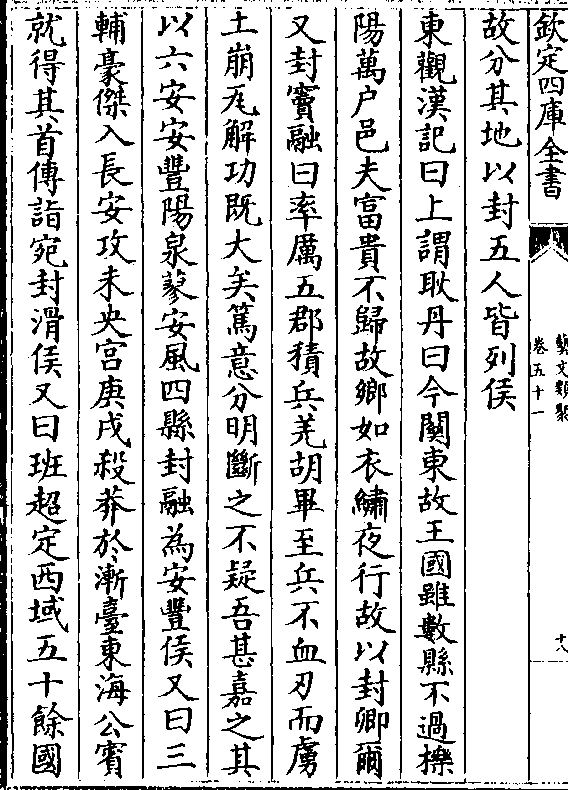 欽定四庫全書
藝文類聚
卷五十一
十八
故分其地以封五人皆列侯
東觀漢記曰上謂耿丹曰今關東故王國雖數縣不過櫟
陽萬户邑夫富貴不歸故鄉如衣繡夜行故以封卿爾
又封竇融曰率厲五郡積兵羌胡畢至兵不血刃而虜
土崩瓦解功既大矣篤意分明斷之不疑吾甚嘉之其
以六安安豐陽泉蓼安風四縣封融為安豐侯又曰三
輔豪傑入長安攻未央宫庚戌殺莽於漸臺東海公賓
就得其首傳詣宛封滑侯又曰班超定西域五十餘國